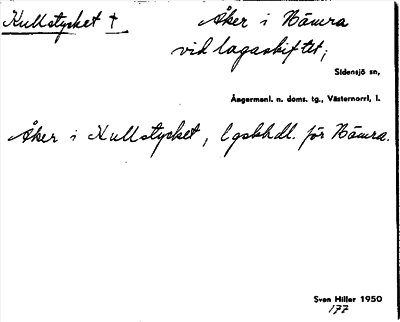 Kullstycket † Åker i Nämra
vid lagaskiftet;
Sidensjö sn,
Ångermanl. n. doms. tg., Västernorrl, l.
Åker i Kullstycket, lgskhdl. för Nämra.
Sven Hiller 1950
177